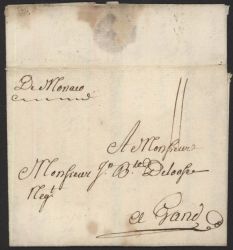 De Monaco
A Monsieur
Monsieur Jn. Bte Deloose
Negt
a Gand